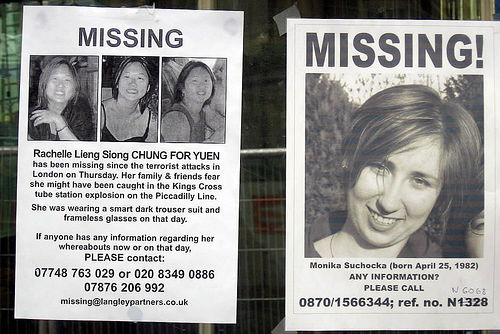 MISSING
Rachelle Lieng Siong CHUNG FOR YUEN
has been missing since the terrorist attacks in
London on Thursday. Her family & friends fear
she might have been caught in the Kings Cross
tube station explosion on the Piccadilly Line.
She was wearing a smart dark trouser suit and
frameless glasses on that day.
If anyone has any information regarding her
whereabouts now or on that day,
PLEASE contact:
07748 763 029 or 020 8349 0886
07876 206 992
missing@langleypartners.co.uk
MISSING!
Monika Suchocka (born April 25, 1982)
ANY INFORMATION?
PLEASE CALL
N 6068
0870/1566344; ref. no. N1328